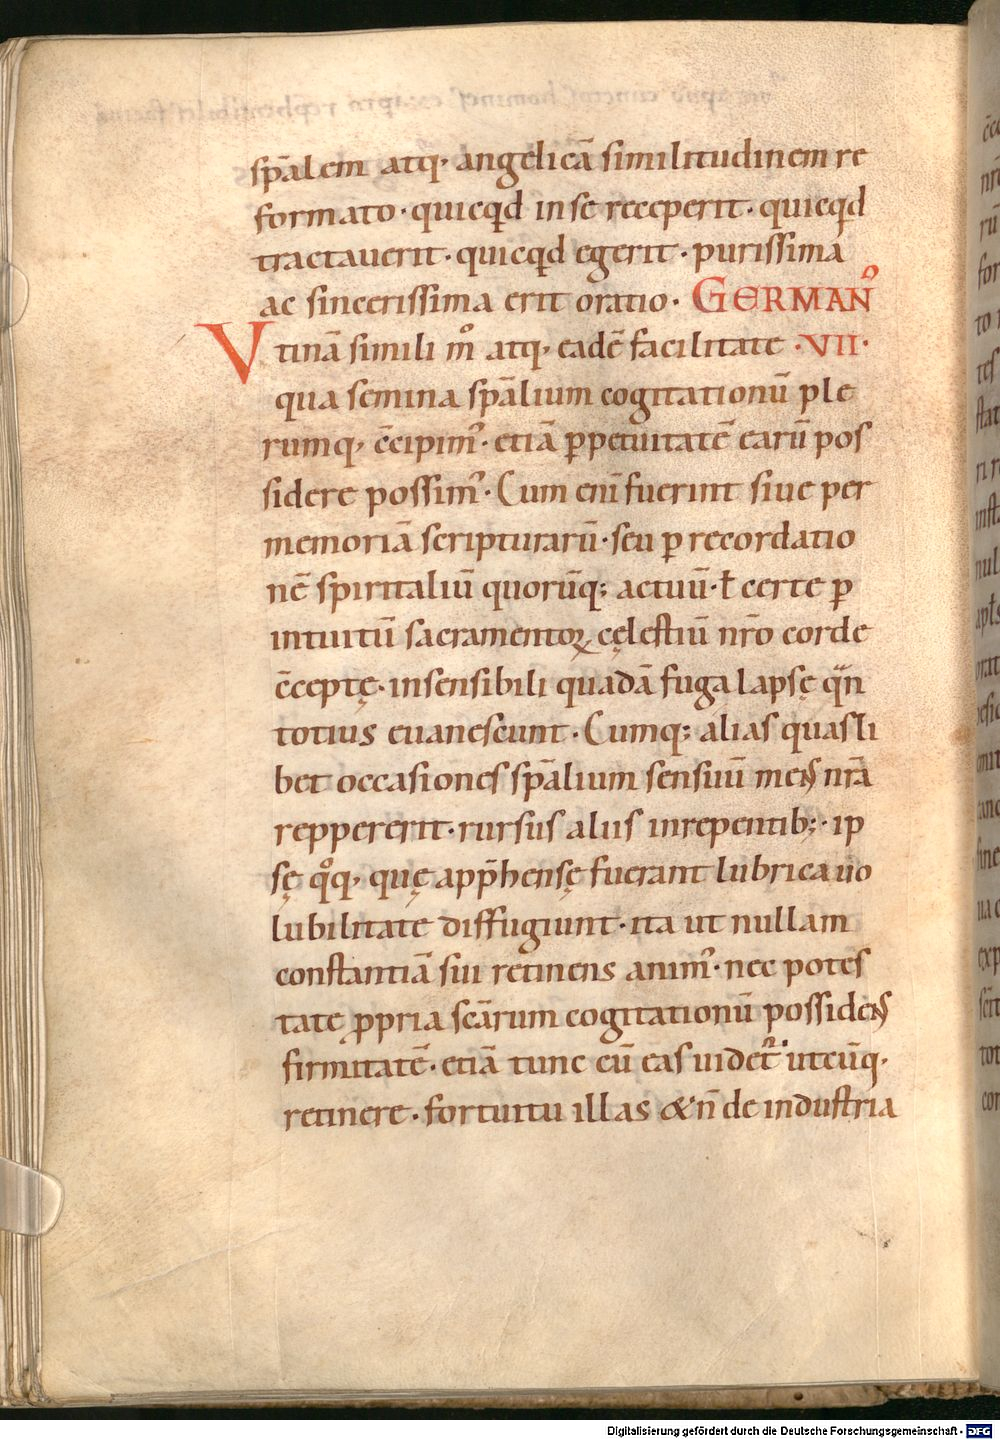 sp̄alem atq; angelicā similitudinem re
formato · quicqd in se receperit · quicqd
tractauerit · quicqd egerit · purissima
ac sincerissima erit oratio · GERMANꝰ
Vtinā simili m̊ atq; eadē facilitate · VII ·
qua semina sp̄alium cogitationū ple
rumq; c̄cipimꝰ · etiā ꝑpetuitatē earū pos
sidere possimꝰ · Cum eni̅ fuerint siue per
memoriā scripturarū · seu ꝑ recordatio
nē spiritaliū quorūq; actuū · ł certe ꝑ
intuitū sacramentoꝝ cęlestiū nr̄o corde
c̄ceptę · insensibili quadā fuga lapsę q̄n
totius euanescunt · Cumq; alias quasli
bet occasiones sp̄alium sensuū mens nr̄a
reppererit · rursus aliis inrepentib; · ip
sę qͦq; quę app̄hensę fuerant lubrica uo
lubilitate diffugiunt · ita ut nullam
constantiā sui retinens animꝰ · nec potes
tate ꝓpria scārum cogitationū possidens
firmitatē · etiā tunc cū eas uidet᷑ utcūq;
retinere · fortuitu illas & n̄ de industria
Digitalisierung gefördert durch die Deutsche Forschungsgemeinschaft - DFG